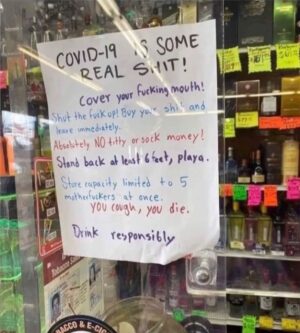 COVID-19 IS SOME
REAL SHIT!
Cover your fucking mouth!
Shut the fuck up! Buy your shit and
leave immediately.
Absolutely NO titty or sock money!
Stand back at least 6 feet, playa.
Store capacity limited to 5
motherfuckers at once.
YOU cough, you die.
Drink responsibly